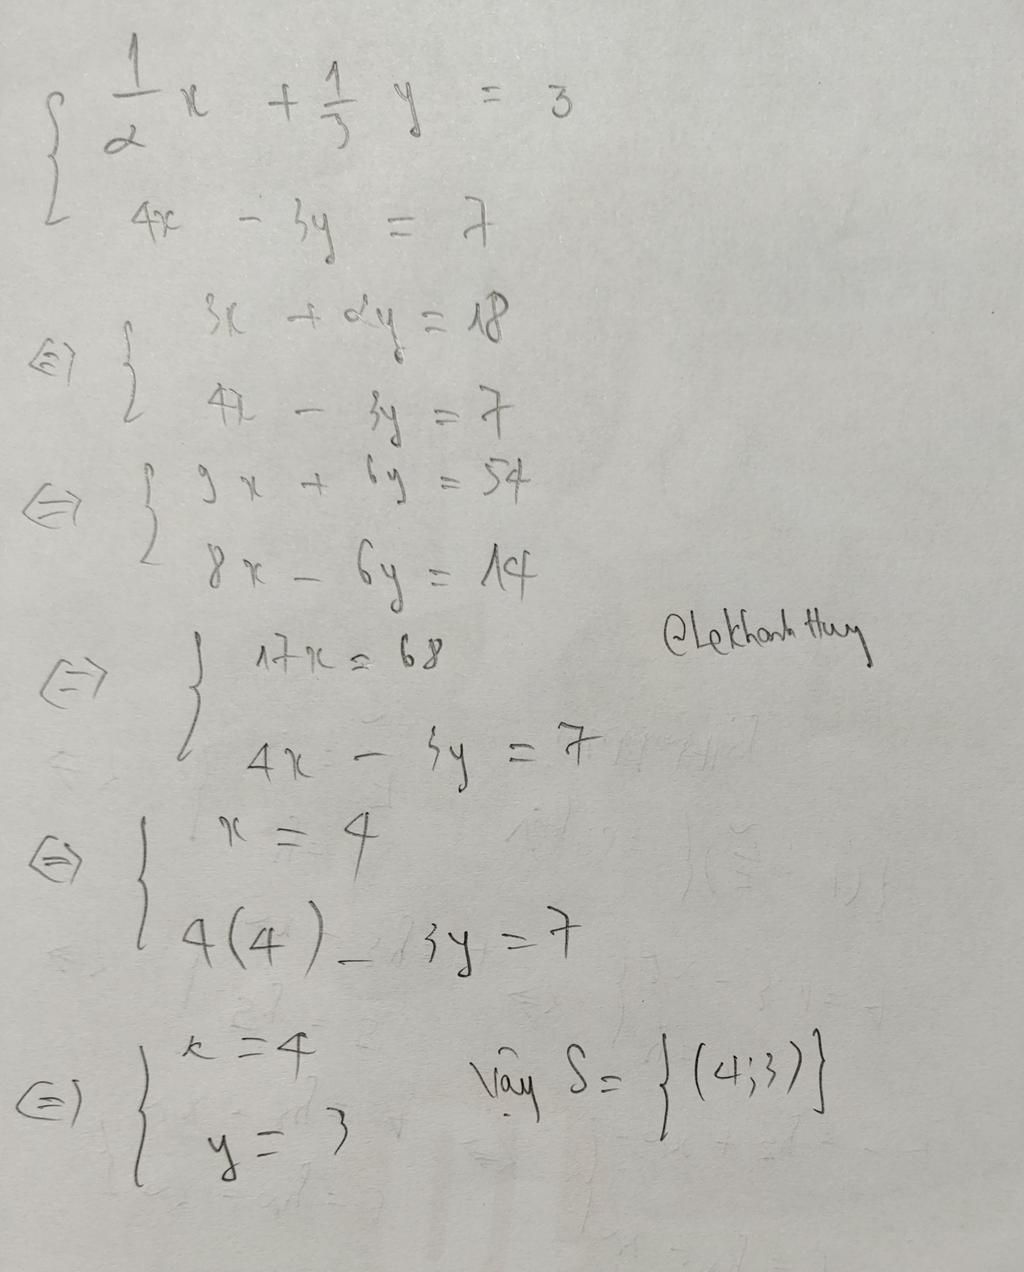 { 1/2 x + 1/3 y = 3
4x - 3y = 7
<=> { 3x + 2y = 18
4x - 3y = 7
<=> { 9x + 6y = 54
8x - 6y = 14
<=> { 17x = 68
@Lekhanh Huy
4x - 3y = 7
<=> { x = 4
4(4) - 3y = 7
<=> { x = 4
y = 3
Vậy S = {(4;3)}